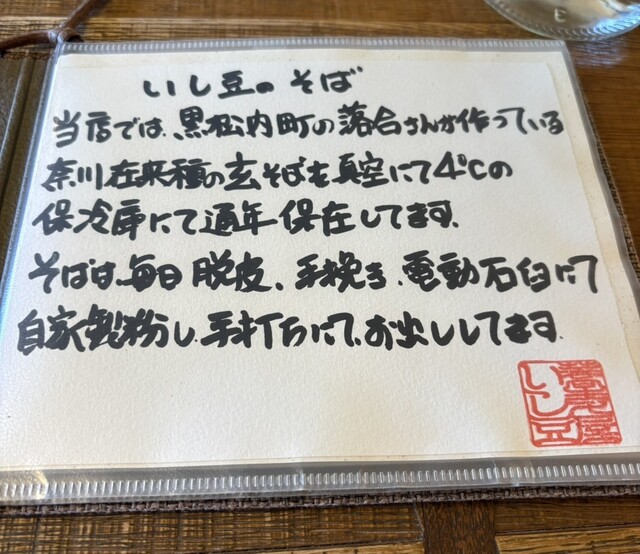 いし豆のそば
当店では、黒松内町の落合さんが作っている
奈川在来種の玄そばを真空にて4℃の
保冷庫にて通年保在してます。
そばは、毎日脱皮、手挽き、電動石臼にて
自家製粉し、手打ちにて、お出ししてます。
いし豆